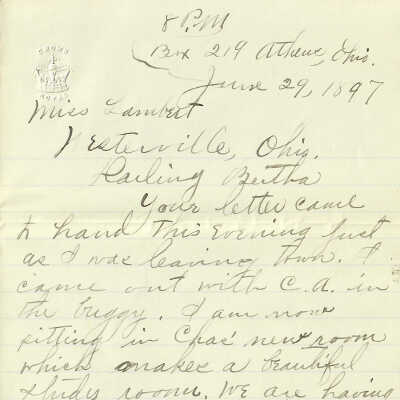 8 P.M
Box 219 Athens, Ohio.
June 29, 1897
Miss Lambert
Westerville, Ohio.
Darling Bertha
Your letter came
to hand this evening just
as I was leaving town. I
came out with C.A. in
the buggy. I am now
sitting in Chas' new room
which makes a beautiful
study room. We are having